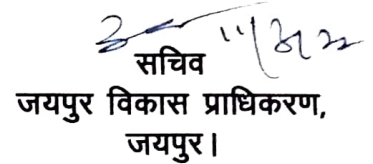 सचिव
जयपुर विकास प्राधिकरण,
जयपुर।